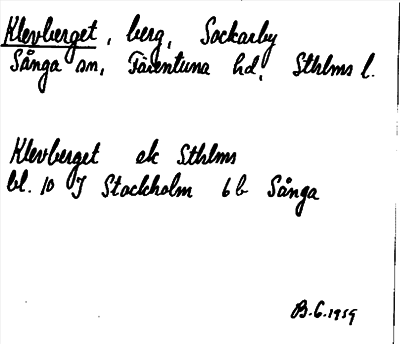 Klevberget, berg, Sockarby
Sånga sn, Färentuna hd, Sthlms l.
Klevberget ek Sthlms
bl. 10 J Stockholm 6b Sånga
B.G. 1959